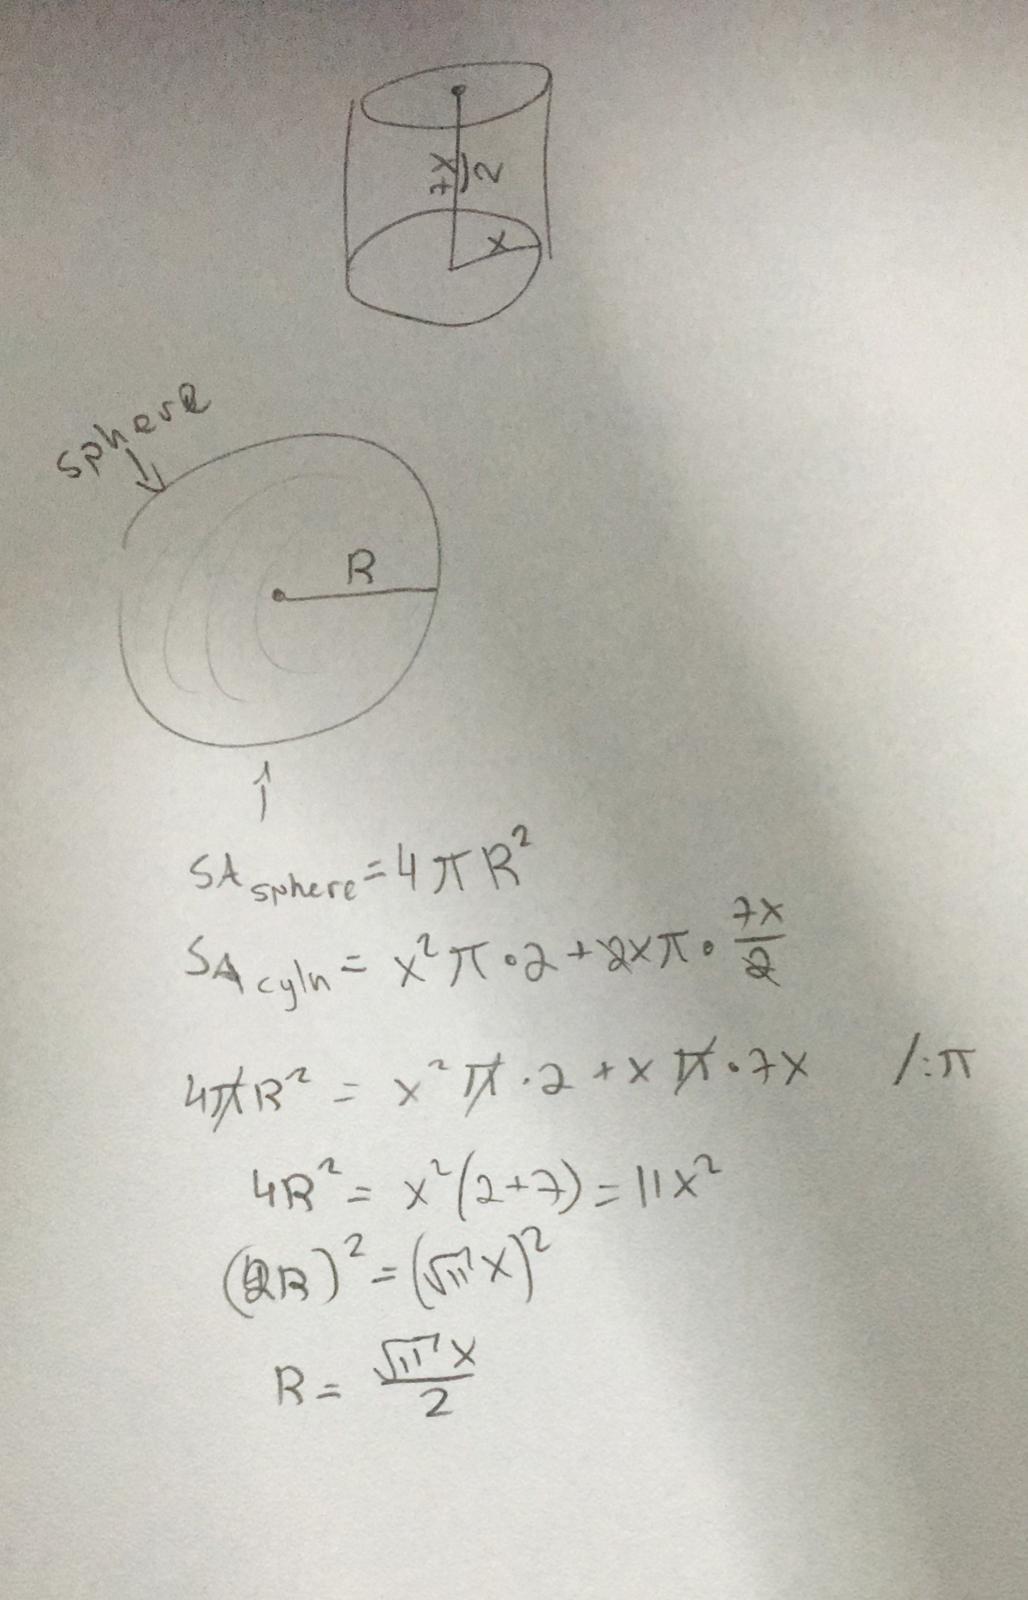 7x/2
x
sphere
R
SA sphere = 4πR²
SA cyln = x²π·2 + 2xπ · 7x/2
4πR² = x²π·2 + xπ·7x /:π
4R² = x²(2+7) = 11x²
(2R)² = (√11 x)²
R = √11 x/2